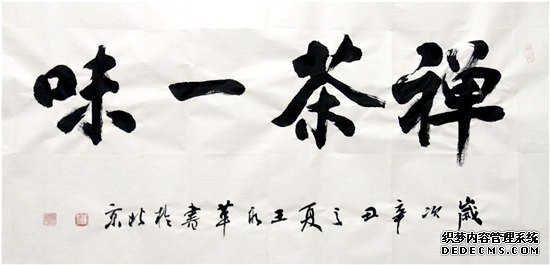 禅茶一味
歲次辛丑之夏王
華書於北京
织梦内容管理系统
DEDECMS.COM